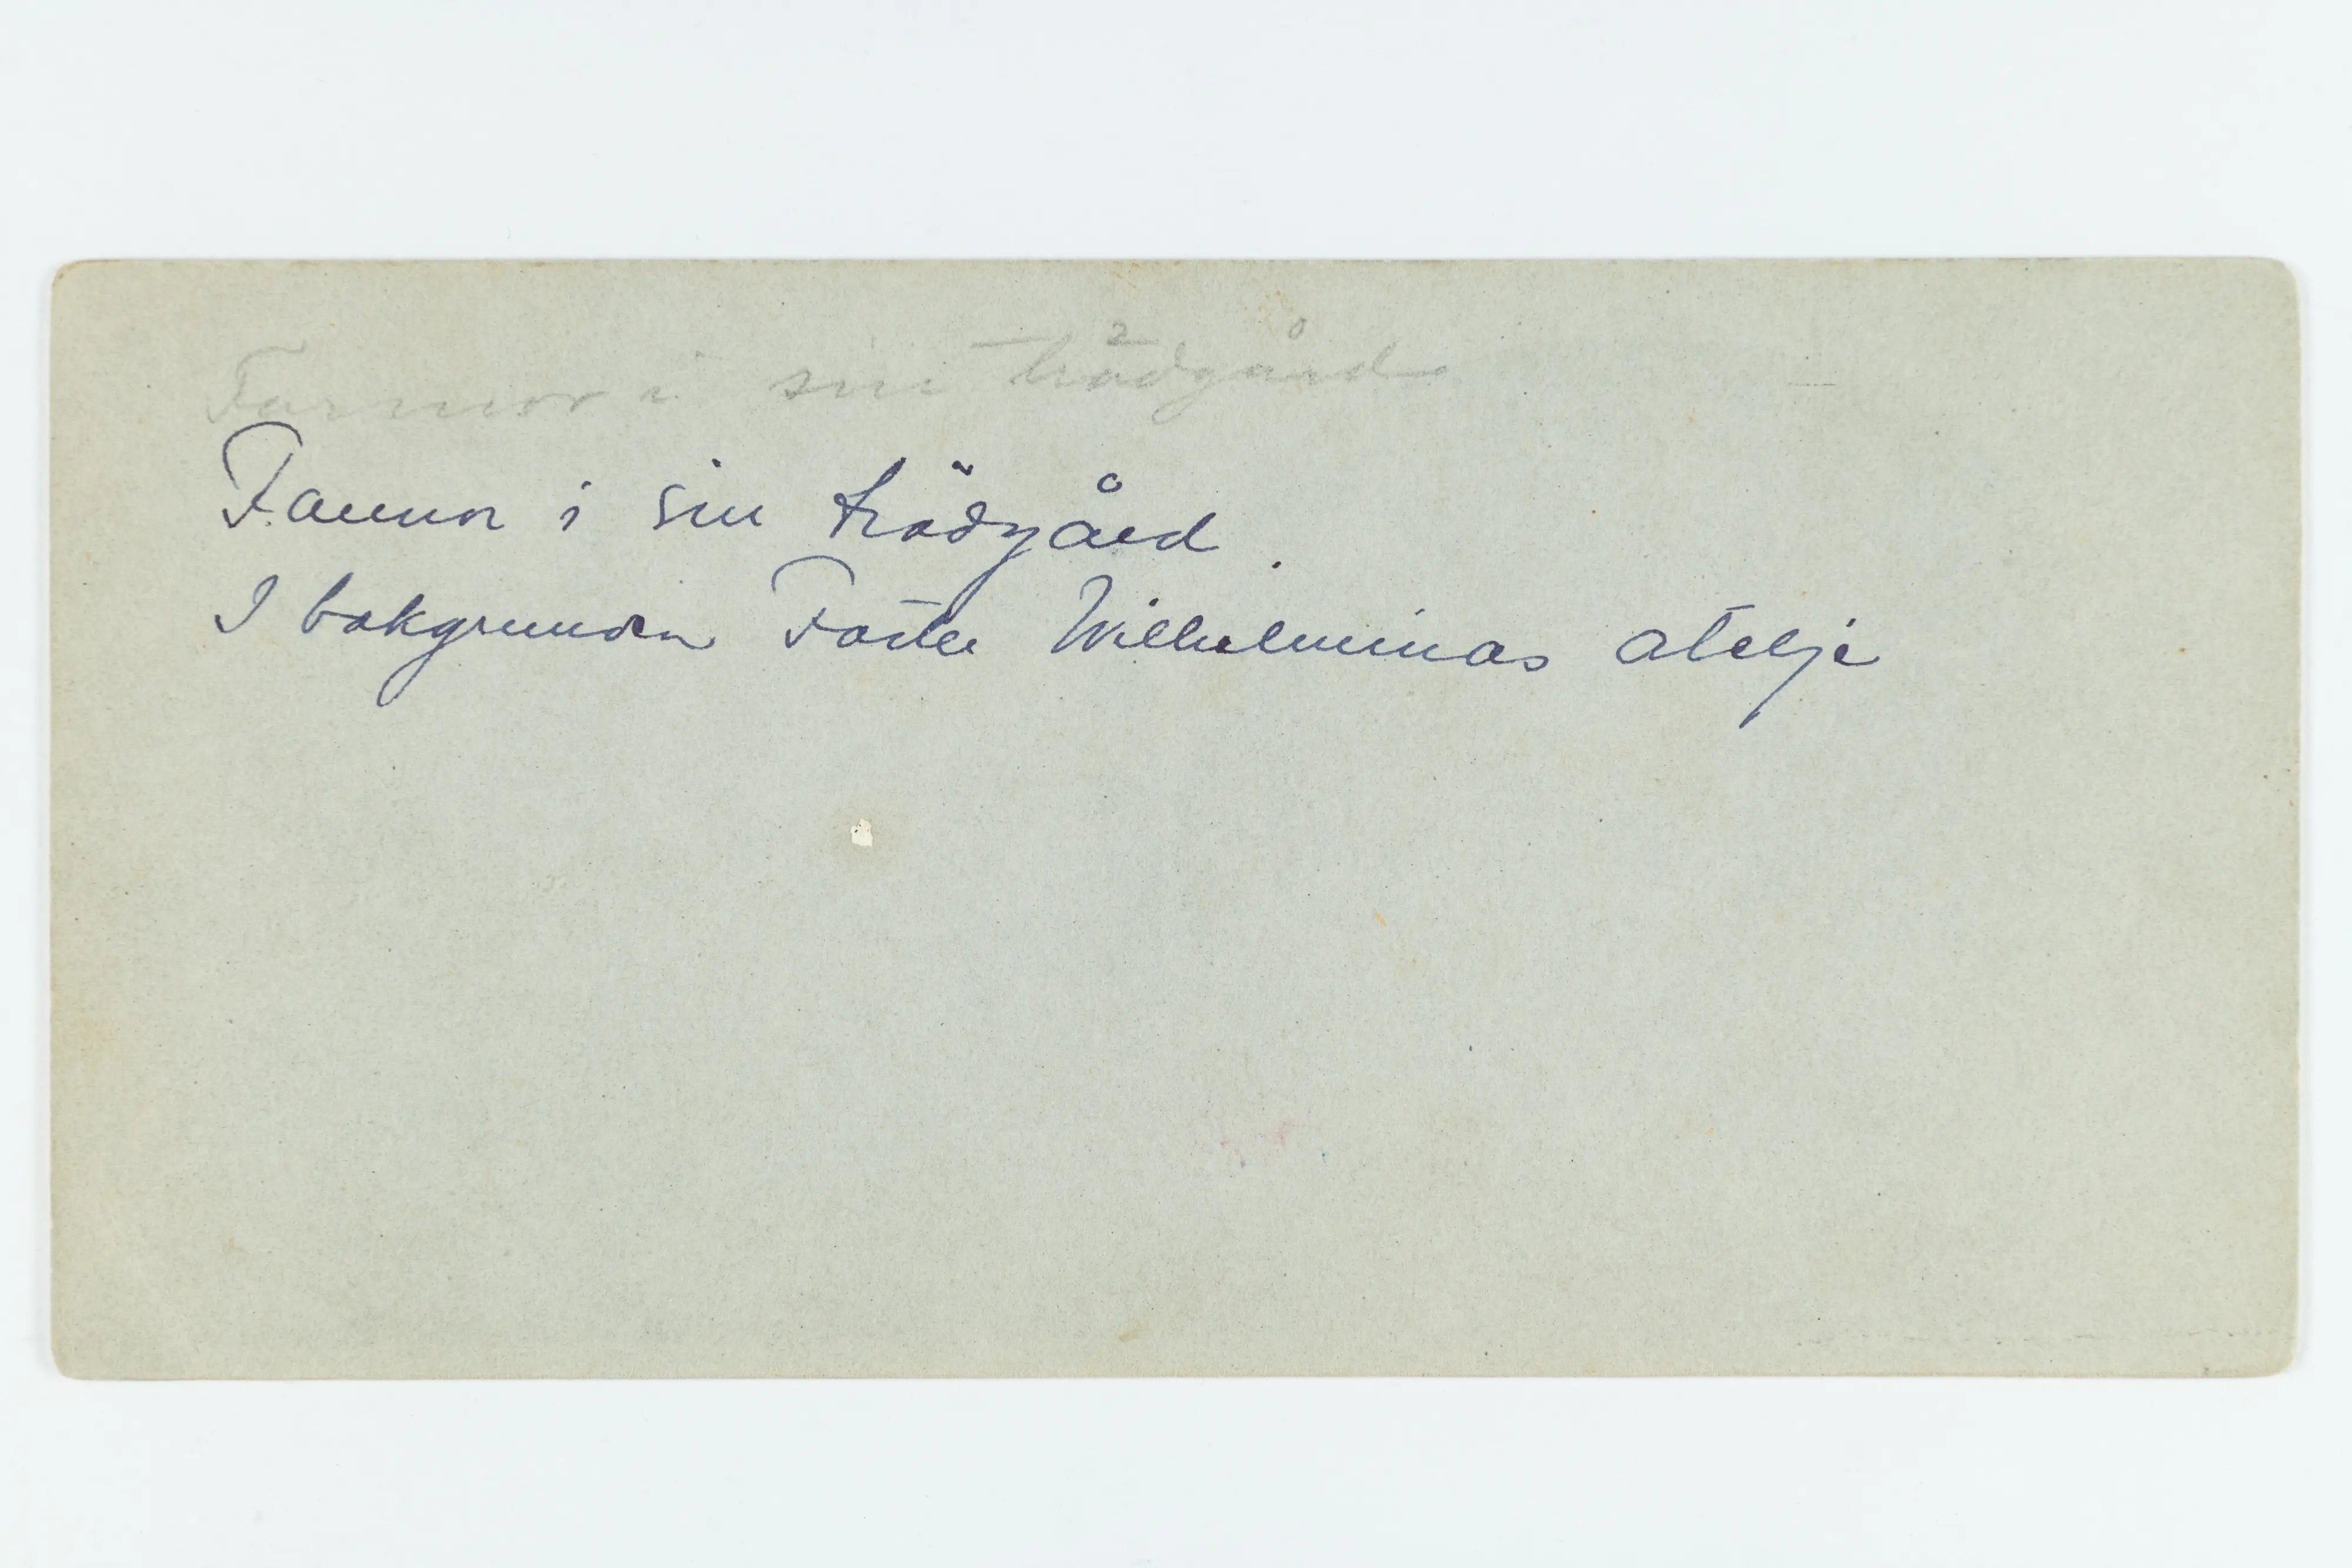 Farmor i sin trädgård
Farmor i sin trädgård.
I bakgrunden Faster Wilhelminas ateljé